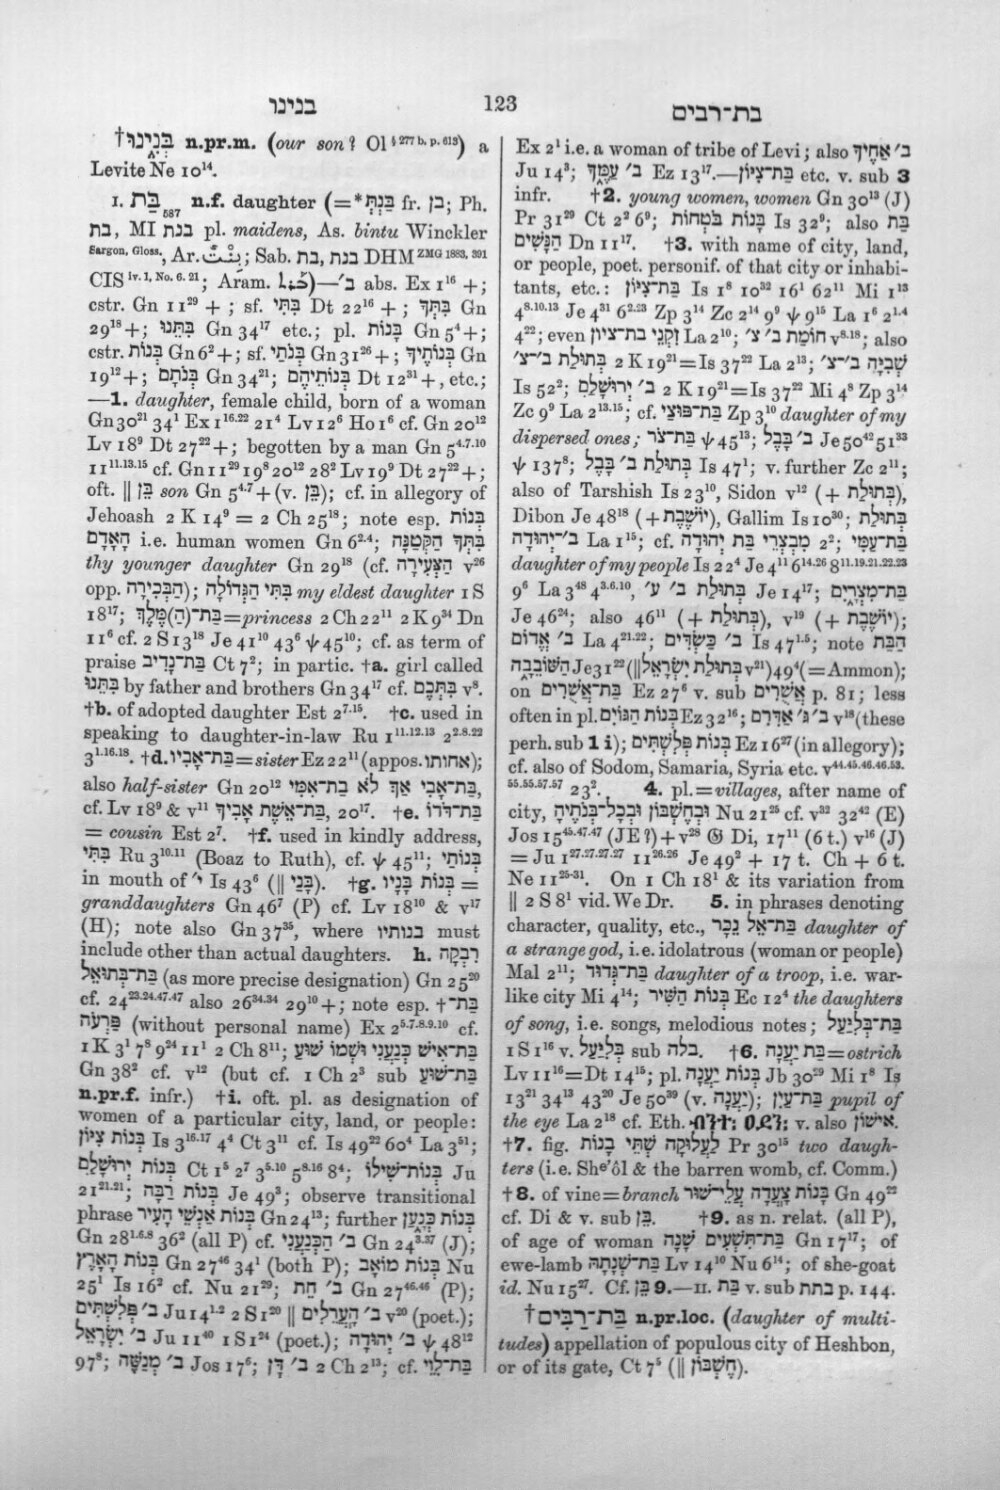 בנינו 123 בת־רבים
†בְּנִינוּ n.pr.m. (our son? Ol § 277 b, p. 613) a
Levite Ne 10¹⁴.
I. בַּת 587 n.f. daughter (=*בַּנְתְּ fr. בֵּן; Ph.
בת, MI בנת pl. maidens, As. bintu Winckler
Sargon, Gloss., Ar. بِنْتٌ; Sab. בנת, בת DHM ZMG 1883, 391
CIS iv. 1, No. 6. 21; Aram. )—ב׳ abs. Ex 1¹⁶ +;
cstr. Gn 11²⁹ + ; sf. בִּתִּי Dt 22¹⁶ + ; בִּתְּךָ Gn
29¹⁸+; בִּתֵּנוּ Gn 34¹⁷ etc.; pl. בָּנוֹת Gn 5⁴+;
cstr. בְּנוֹת Gn 6²+; sf. בְּנֹתַי Gn 31²⁶+; בְּנוֹתֶיךָ Gn
19¹²+; בְּנֹתָם Gn 34²¹; בְּנוֹתֵיהֶם Dt 12³¹+, etc.;
—1. daughter, female child, born of a woman
Gn 30²¹ 34¹ Ex 1¹⁶·²² 21⁴ Lv 12⁶ Ho 1⁶ cf. Gn 20¹²
Lv 18⁹ Dt 27²²+; begotten by a man Gn 5⁴·⁷·¹⁰
11¹¹·¹³·¹⁵ cf. Gn 11²⁹ 19⁸ 20¹² 28² Lv 19⁹ Dt 27²²+;
oft. || בֵּן son Gn 5⁴·⁷+(v. בֵּן); cf. in allegory of
Jehoash 2 K 14⁹ = 2 Ch 25¹⁸; note esp. בְּנוֹת
הָאָדָם i.e. human women Gn 6²·⁴; בִּתְּךָ הַקְּטַנָּה
thy younger daughter Gn 29¹⁸ (cf. הַצְּעִירָה v²⁶
opp. הַבְּכִירָה); בִּתִּי הַגְּדוֹלָה my eldest daughter 1 S
18¹⁷; בַּת־(הַ)מֶּלֶךְ=princess 2 Ch 22¹¹ 2 K 9³⁴ Dn
11⁶ cf. 2 S 13¹⁸ Je 41¹⁰ 43⁶ ψ 45¹⁰; cf. as term of
praise בַּת־נָדִיב Ct 7²; in partic. †a. girl called
בִּתֵּנוּ by father and brothers Gn 34¹⁷ cf. בִּתְּכֶם v⁸.
†b. of adopted daughter Est 2⁷·¹⁵. †c. used in
speaking to daughter-in-law Ru 1¹¹·¹²·¹³ 2²·⁸·²²
3¹·¹⁶·¹⁸. †d. בַּת־אָבִיו=sister Ez 22¹¹ (appos. אחותו);
also half-sister Gn 20¹² בַּת־אָבִי אַךְ לֹא בַת־אִמִּי,
cf. Lv 18⁹ & v¹¹ בַּת־אֵשֶׁת אָבִיךָ, 20¹⁷. †e. בַּת־דֹּדוֹ
= cousin Est 2⁷. †f. used in kindly address,
בִּתִּי Ru 3¹⁰·¹¹ (Boaz to Ruth), cf. ψ 45¹¹; בְּנוֹתַי
in mouth of י׳ Is 43⁶ (|| בָּנַי). †g. בְּנוֹת בָּנָיו =
granddaughters Gn 46⁷ (P) cf. Lv 18¹⁰ & v¹⁷
(H); note also Gn 37³⁵, where בנותיו must
include other than actual daughters. h. רִבְקָה
בַּת־בְּתוּאֵל (as more precise designation) Gn 25²⁰
cf. 24²³·²⁴·⁴⁷·⁴⁷ also 26³⁴·³⁴ 29¹⁰+; note esp. †בַּת־
פַּרְעֹה (without personal name) Ex 2⁵·⁷·⁸·⁹·¹⁰ cf.
1 K 3¹ 7⁸ 9²⁴ 11¹ 2 Ch 8¹¹; בַּת־אִישׁ כְּנַעֲנִי וּשְׁמוֹ שׁוּעַ
Gn 38² cf. v¹² (but cf. 1 Ch 2³ sub בַּת־שׁוּעַ
n.pr.f. infr.) †i. oft. pl. as designation of
women of a particular city, land, or people:
בְּנוֹת צִיּוֹן Is 3¹⁶·¹⁷ 4⁴ Ct 3¹¹ cf. Is 49²² 60⁴ La 3⁵¹;
בְּנוֹת יְרוּשָׁלַםִ Ct 1⁵ 2⁷ 3⁵·¹⁰ 5⁸·¹⁶ 8⁴; בְּנוֹת־שִׁילוֹ Ju
21²¹·²¹; בְּנוֹת רַבָּה Je 49³; observe transitional
phrase בְּנוֹת אַנְשֵׁי הָעִיר Gn 24¹³; further בְּנוֹת כְּנָעַן
Gn 28¹·⁶·⁸ 36² (all P) cf. ב׳ הַכְּנַעֲנִי Gn 24³·³⁷ (J);
בְּנוֹת הָאָרֶץ Gn 27⁴⁶ 34¹ (both P); בְּנוֹת מוֹאָב Nu
25¹ Is 16² cf. Nu 21²⁹; ב׳ חֵת Gn 27⁴⁶·⁴⁶ (P);
ב׳ פְּלִשְׁתִּים Ju 14¹·² 2 S 1²⁰ || ב׳ הָעֲרֵלִים v²⁰ (poet.);
ב׳ יִשְׂרָאֵל Ju 11⁴⁰ 1 S 1²⁴ (poet.); ב׳ יְהוּדָה ψ 48¹²
97⁸; ב׳ מְנַשֶּׁה Jos 17⁶; ב׳ דָּן 2 Ch 2¹³; cf. בַּת־לֵוִי
Ex 2¹ i.e. a woman of tribe of Levi; also ב׳ אָחִיךָ
Ju 14³; ב׳ עַמְּךָ Ez 13¹⁷.—בַּת־צִיּוֹן etc. v. sub 3
infr. †2. young women, women Gn 30¹³ (J)
Pr 31²⁹ Ct 2² 6⁹; בָּנוֹת בֹּטְחוֹת Is 32⁹; also בַּת
הַנָּשִׁים Dn 11¹⁷. †3. with name of city, land,
or people, poet. personif. of that city or inhabi-
tants, etc.: בַּת־צִיּוֹן Is 1⁸ 10³² 16¹ 62¹¹ Mi 1¹³
4⁸·¹⁰·¹³ Je 4³¹ 6²·²³ Zp 3¹⁴ Zc 2¹⁴ 9⁹ ψ 9¹⁵ La 1⁶ 2¹·⁴
4²²; even זִקְנֵי בת־ציון La 2¹⁰; חוֹמַת ב׳ צ׳ v⁸·¹⁸; also
בְּתוּלַת ב׳־צ׳ 2 K 19²¹=Is 37²² La 2¹³; שְׁבִיָּה ב׳־צ׳
Is 52²; ב׳ יְרוּשָׁלַםִ 2 K 19²¹=Is 37²² Mi 4⁸ Zp 3¹⁴
Zc 9⁹ La 2¹³·¹⁵; cf. בַּת־פּוּצַי Zp 3¹⁰ daughter of my
dispersed ones; בַּת־צֹר ψ 45¹³; ב׳ בָּבֶל Je 50⁴² 51³³
ψ 137⁸; בְּתוּלַת ב׳ בָּבֶל Is 47¹; v. further Zc 2¹¹;
also of Tarshish Is 23¹⁰, Sidon v¹² (+ בְּתוּלַת),
Dibon Je 48¹⁸ (+יוֹשֶׁבֶת), Gallim Is 10³⁰; בְּתוּלַת
ב׳־יְהוּדָה La 1¹⁵; cf. מִבְצְרֵי בַת יְהוּדָה 2²; בַּת־עַמִּי
daughter of my people Is 22⁴ Je 4¹¹ 6¹⁴·²⁶ 8¹¹·¹⁹·²¹·²²·²³
9⁶ La 3⁴⁸ 4³·⁶·¹⁰, בְּתוּלַת ב׳ ע׳ Je 14¹⁷; בַּת־מִצְרָיִם
Je 46²⁴; also 46¹¹ (+ בְּתוּלַת), v¹⁹ (+ יוֹשֶׁבֶת);
ב׳ אֱדוֹם La 4²¹·²²; ב׳ כַּשְׂדִּים Is 47¹·⁵; note הַבַּת
הַשּׁוֹבֵבָה Je 31²² (||בְּתוּלַת יִשְׂרָאֵל v²¹) 49⁴ (= Ammon);
on בַּת־אֲשֻׁרִים Ez 27⁶ v. sub אֲשֻׁרִים p. 81; less
often in pl. בְּנוֹת הַגּוֹיִם Ez 32¹⁶; ב׳ ג׳ אַדִּרִם v¹⁸ (these
perh. sub 1 i); בְּנוֹת פְּלִשְׁתִּים Ez 16²⁷ (in allegory);
cf. also of Sodom, Samaria, Syria etc. v⁴⁴·⁴⁵·⁴⁶·⁴⁶·⁵³·
⁵⁵·⁵⁵·⁵⁷·⁵⁷ 23². 4. pl.=villages, after name of
city, בְּחֶשְׁבּוֹן וּבְכָל־בְּנֹתֶיהָ Nu 21²⁵ cf. v³² 32⁴² (E)
Jos 15⁴⁵·⁴⁷·⁴⁷ (JE?)+v²⁸ 𝔊 Di, 17¹¹ (6 t.) v¹⁶ (J)
= Ju 1²⁷·²⁷·²⁷·²⁷ 11²⁶·²⁶ Je 49² + 17 t. Ch + 6 t.
Ne 11²⁵⁻³¹. On 1 Ch 18¹ & its variation from
|| 2 S 8¹ vid. We Dr. 5. in phrases denoting
character, quality, etc., בַּת־אֵל נֵכָר daughter of
a strange god, i.e. idolatrous (woman or people)
Mal 2¹¹; בַּת־גְּדוּד daughter of a troop, i.e. war-
like city Mi 4¹⁴; בְּנוֹת הַשִּׁיר Ec 12⁴ the daughters
of song, i.e. songs, melodious notes; בַּת־בְּלִיַּעַל
1 S 1¹⁶ v. בְּלִיַּעַל sub בלה. †6. בַּת יַעֲנָה=ostrich
Lv 11¹⁶=Dt 14¹⁵; pl. בְּנוֹת יַעֲנָה Jb 30²⁹ Mi 1⁸ Is
13²¹ 34¹³ 43²⁰ Je 50³⁹ (v. יַעֲנָה); בַּת־עַיִן pupil of
the eye La 2¹⁸ cf. Eth. v. also אִישׁוֹן.
†7. fig. לַעֲלוּקָה שְׁתֵּי בָנוֹת Pr 30¹⁵ two daugh-
ters (i.e. She'ôl & the barren womb, cf. Comm.)
†8. of vine=branch בָּנוֹת צָעֲדָה עֲלֵי־שׁוּר Gn 49²²
cf. Di & v. sub בֵּן. †9. as n. relat. (all P),
of age of woman בַּת־תִּשְׁעִים שָׁנָה Gn 17¹⁷; of
ewe-lamb בַּת־שְׁנָתָהּ Lv 14¹⁰ Nu 6¹⁴; of she-goat
id. Nu 15²⁷. Cf. בֵּן 9.—II. בַּת v. sub בתת p. 144.
†בַּת־רַבִּים n.pr.loc. (daughter of multi-
tudes) appellation of populous city of Heshbon,
or of its gate, Ct 7⁵ (|| חֶשְׁבּוֹן).